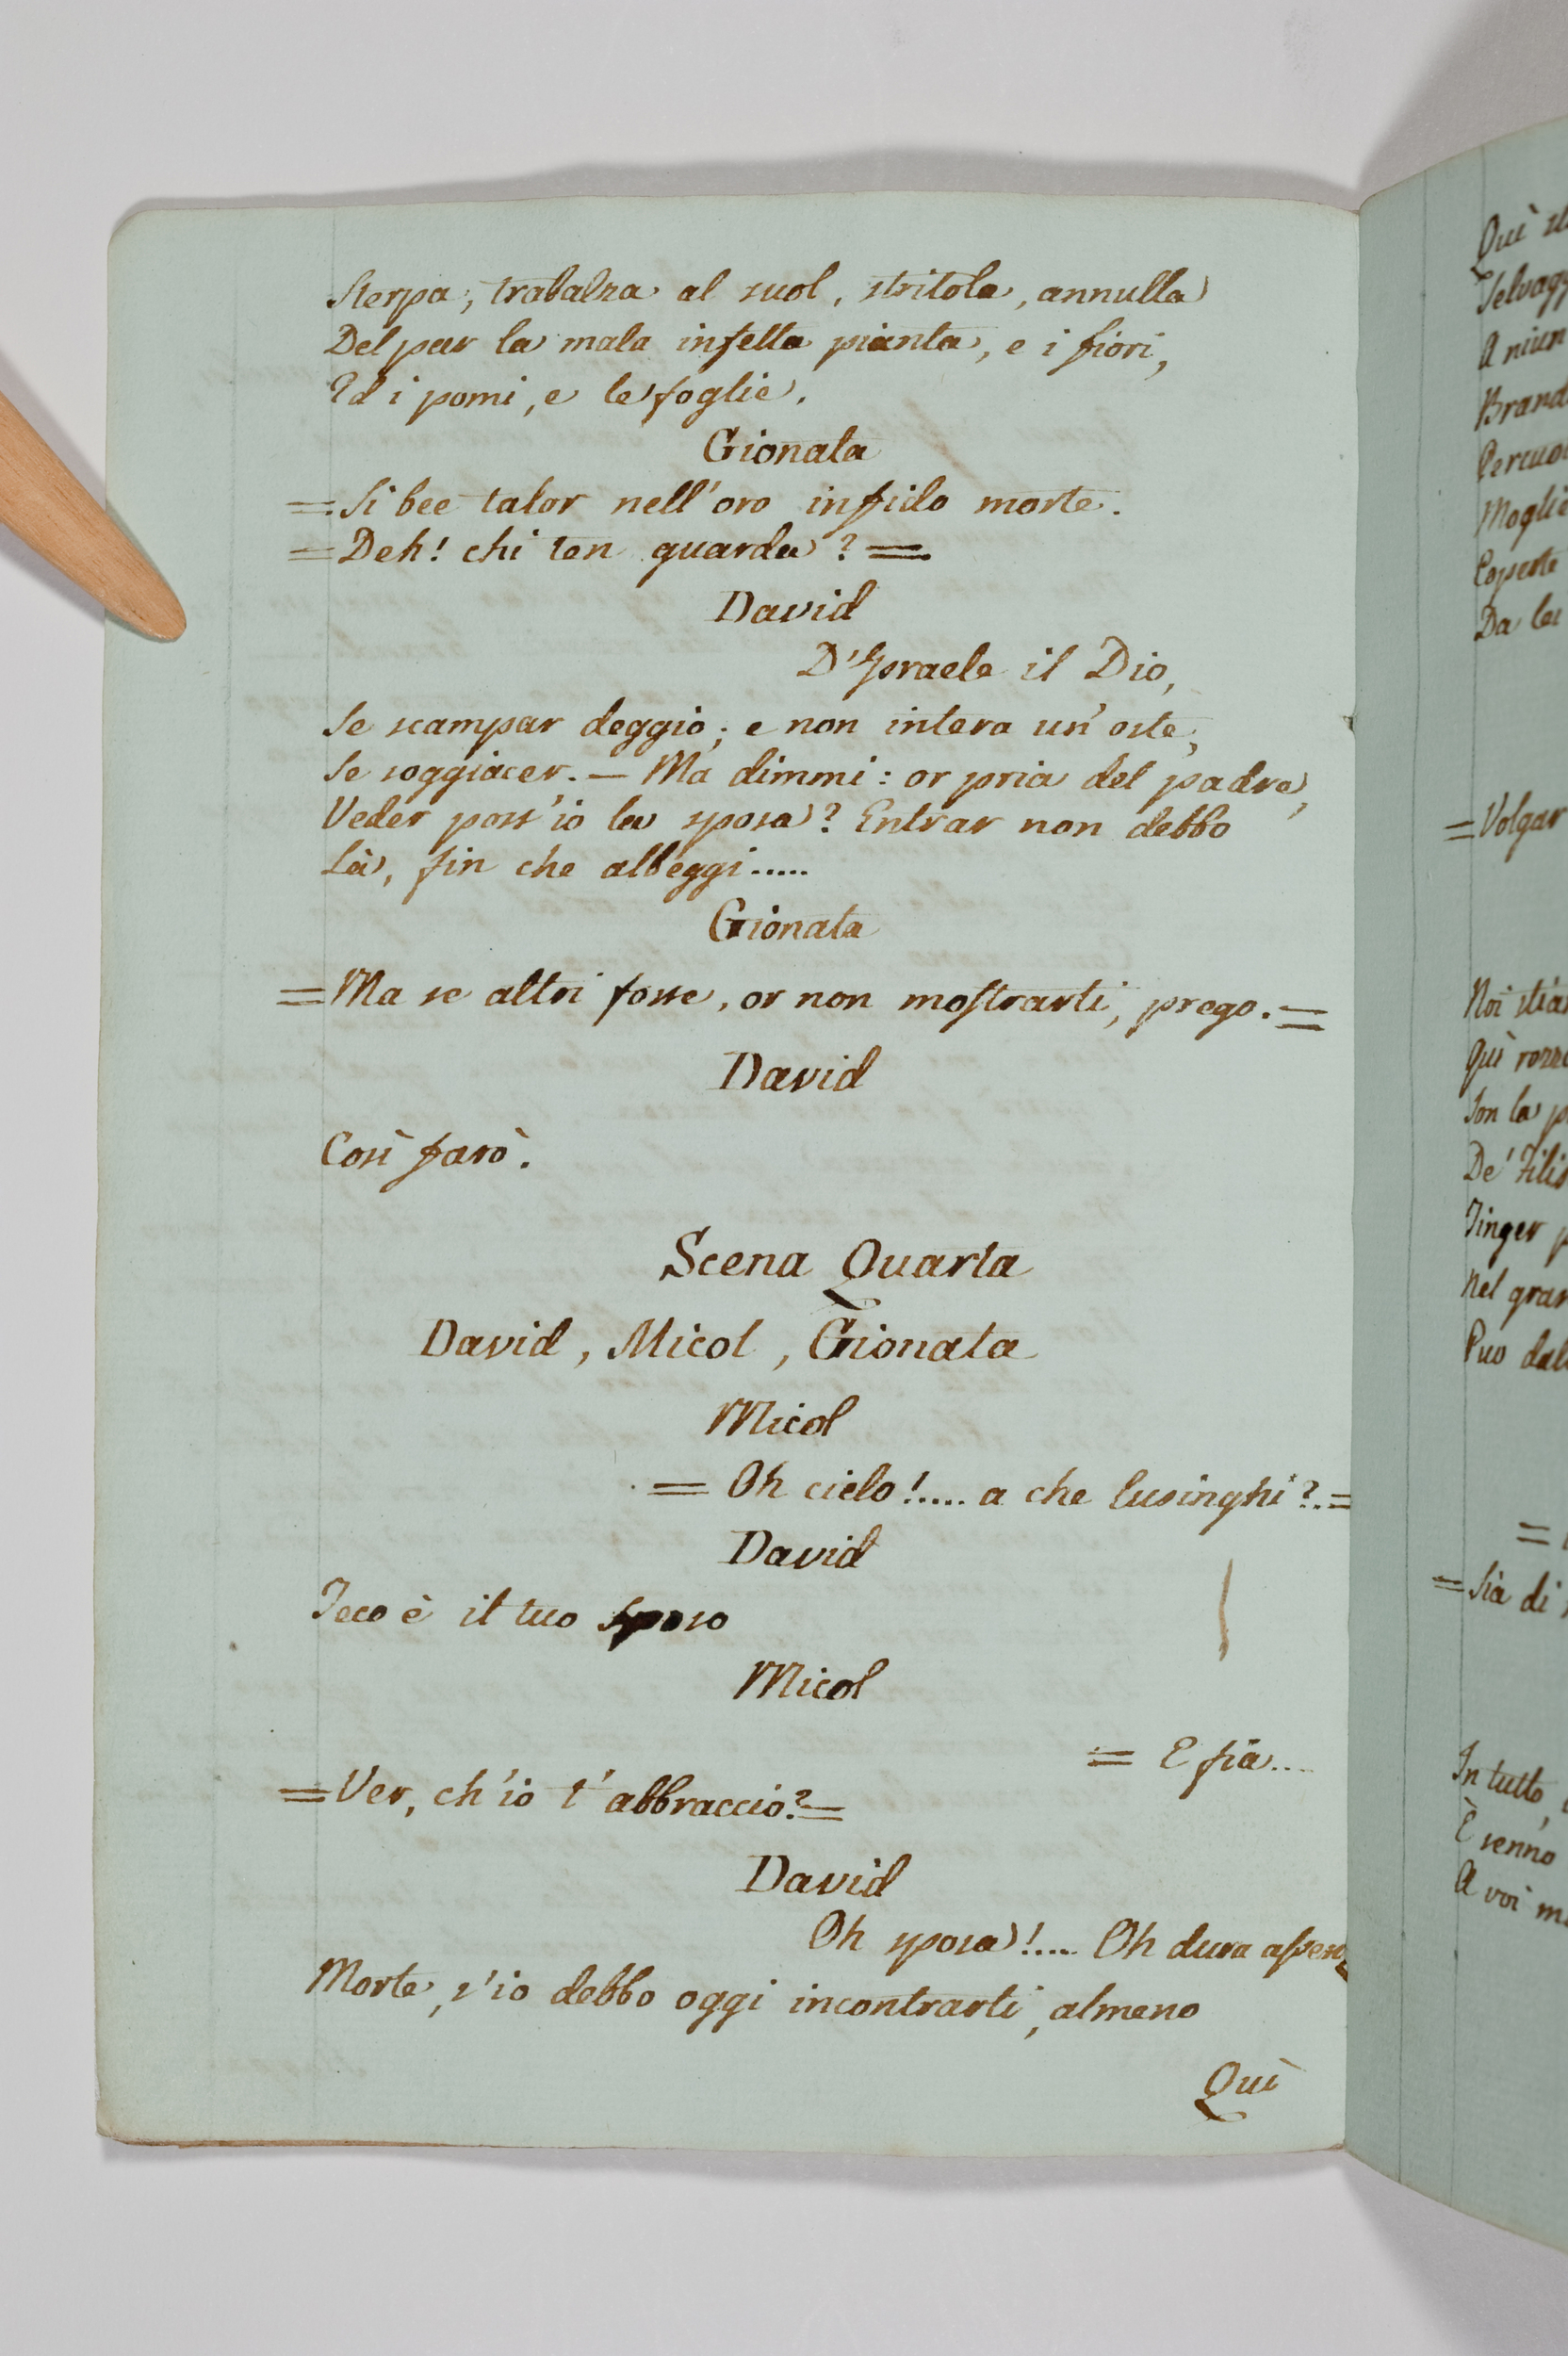 Sterpa, trabalza al suol, stritola, annulla
Del par la mala infetta pianta, e i fiori,
Ed i pomi, e le foglie.
Gionata
= Si bee talor nell'oro infido morte.
= Deh! chi ten guarda? =
David
D'Israele il Dio,
Se scampar deggio; e non intera un'oste,
Se soggiacer. — Ma dimmi: or pria del padre,
Veder poss'io la sposa? Entrar non debbo
Là, fin che albeggi.....
Gionata
= Ma se altri fosse, or non mostrarti, prego. =
David
Così farò.
Scena Quarta
David, Micol, Gionata
Micol
= Oh cielo!..... a che lusinghi?. =
David
Teco è il tuo sposo
Micol
= E fia....
= Ver, ch'io t'abbraccio? =
David
Oh sposa!.... Oh dura
Morte, s'io debbo oggi incontrarti, almeno
Quì
Quì
A niun
Moglie
Da lei
= Volgar
Noi
Quì
Son la
De'
Finger
Nel gran
Può
=
= Sia di
In tutto,
È senno
A voi